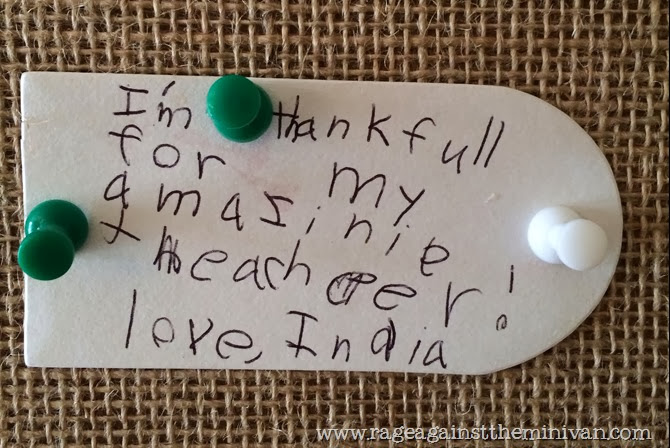 I'm thankfull
for my
amasinie
theacher!
love, India
www.rageagainsttheminivan.com